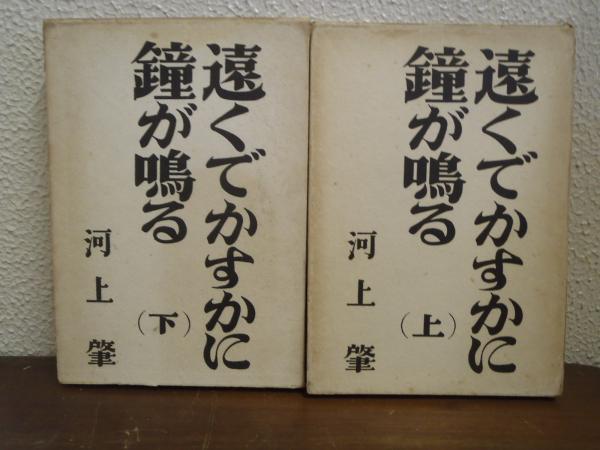 遠くでかすかに
鐘が鳴る
（上）
河上肇
遠くでかすかに
鐘が鳴る
（下）
河上肇